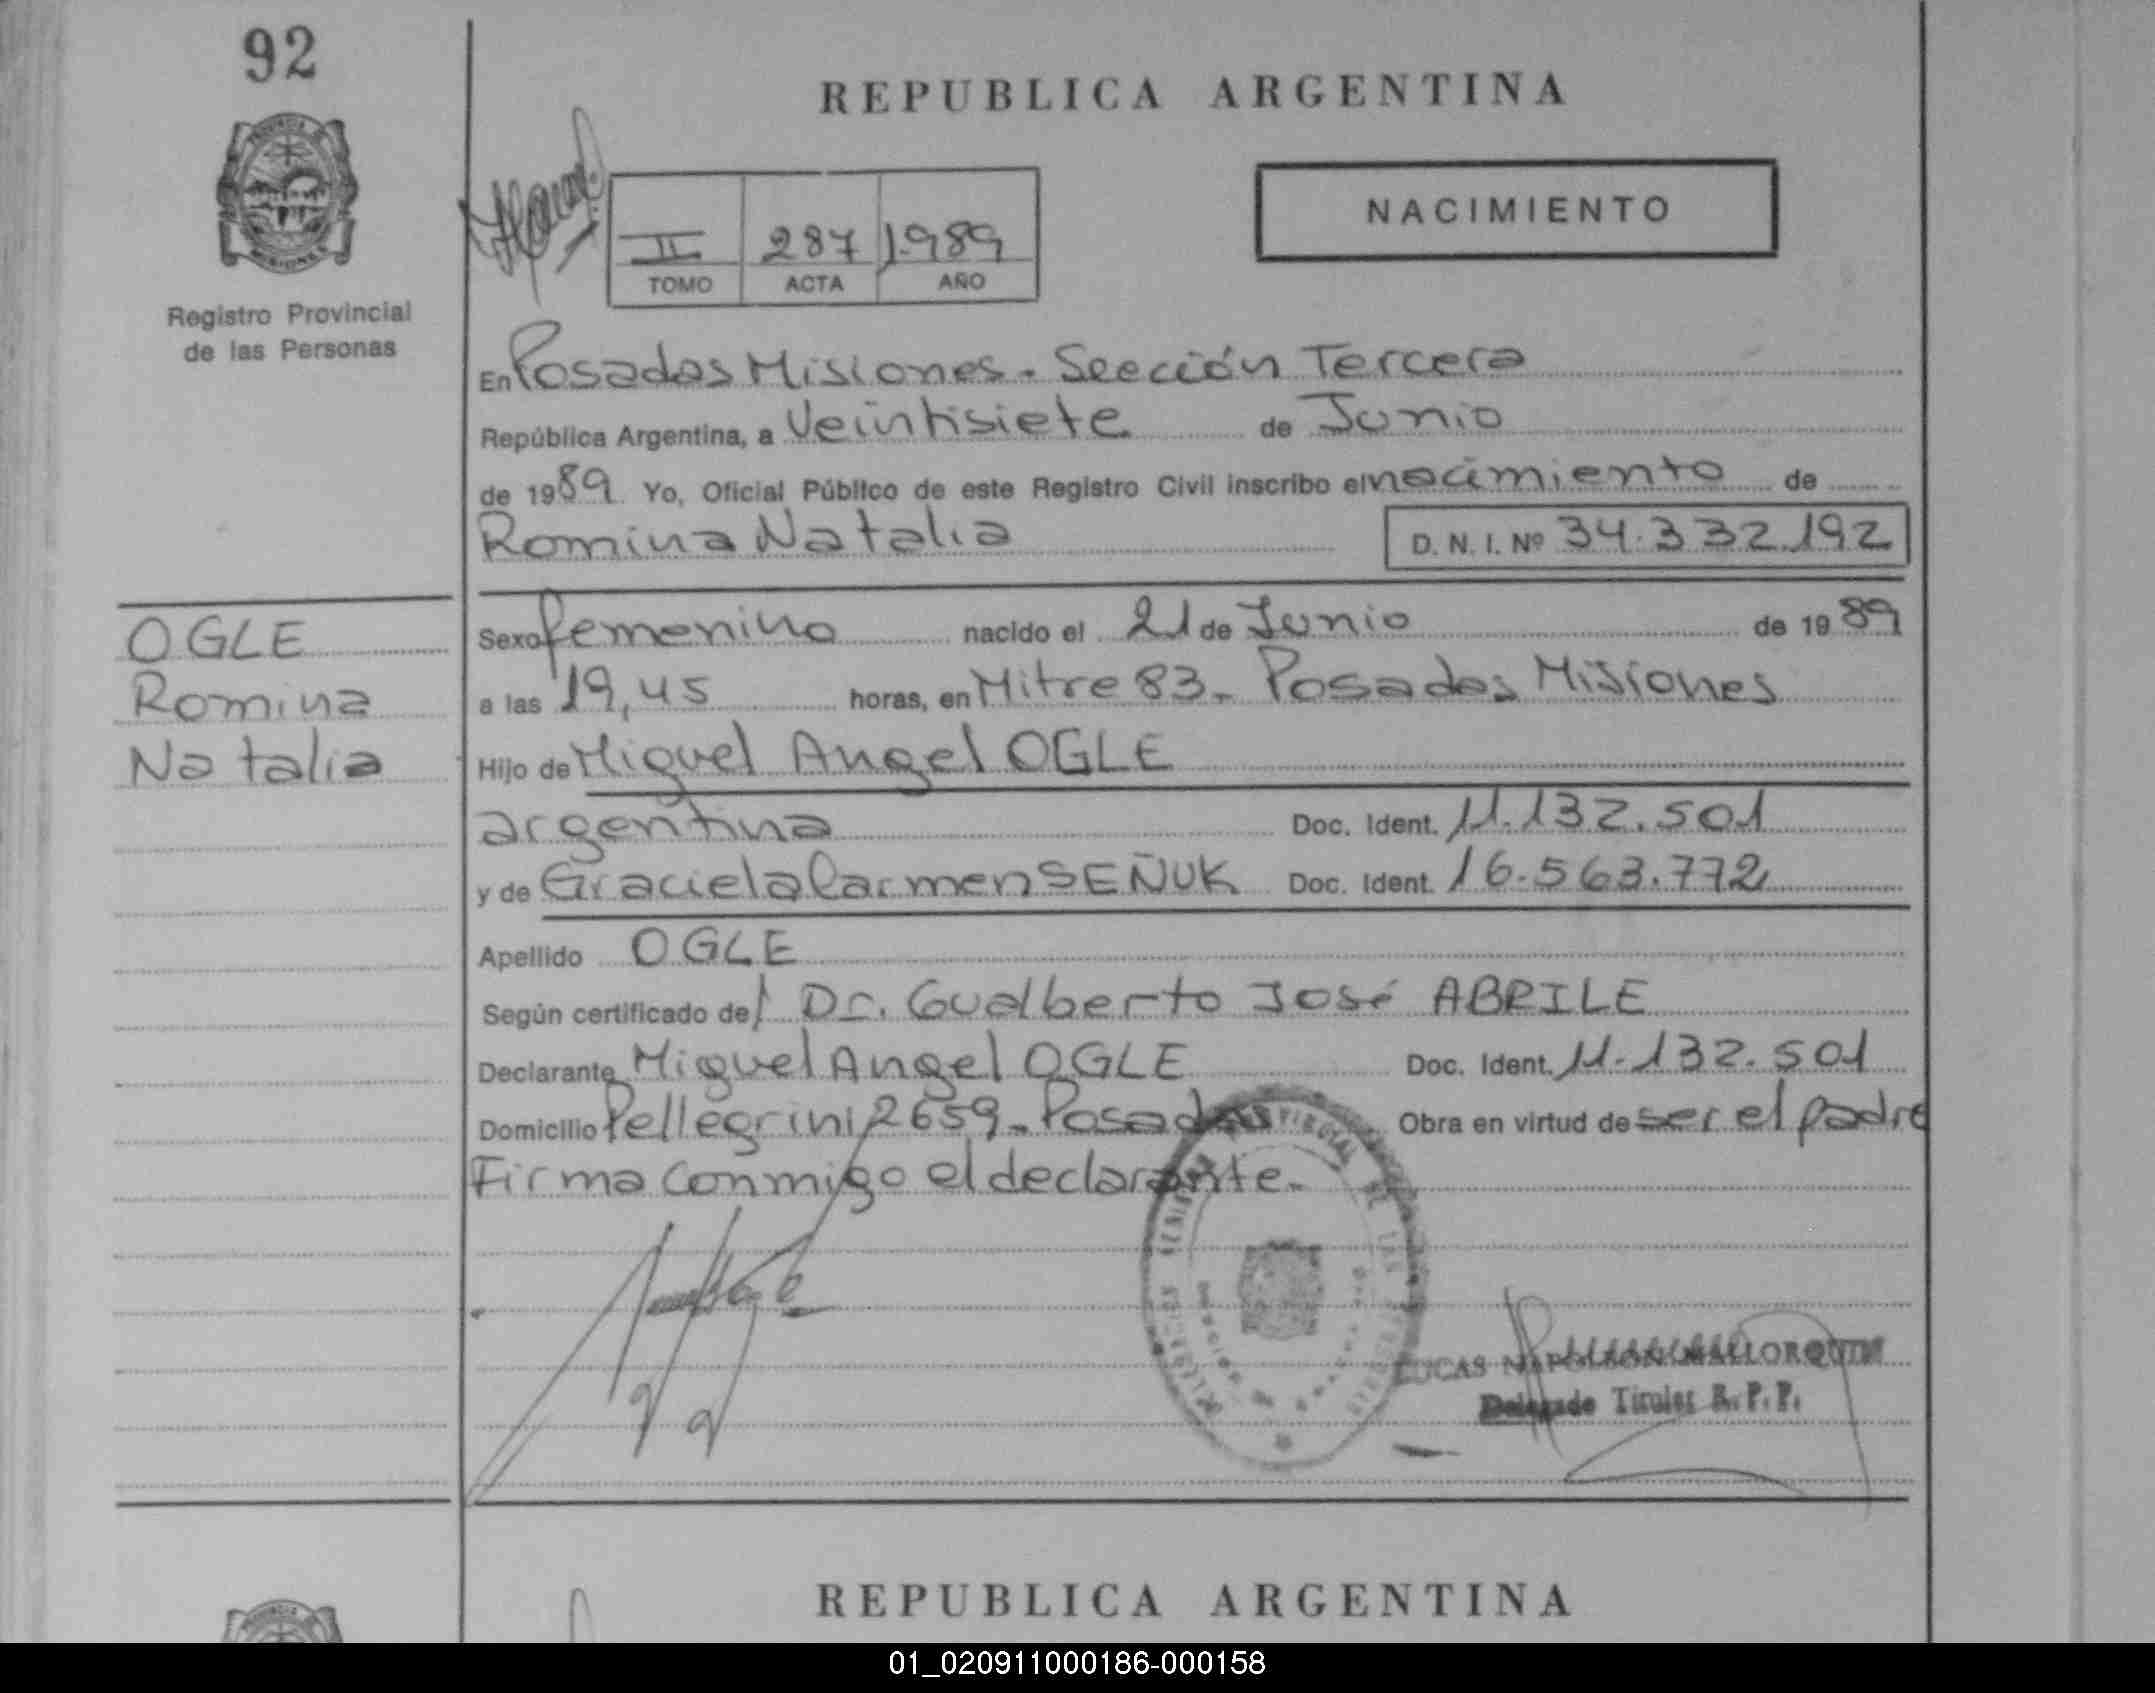 92
REPUBLICA ARGENTINA
NACIMIENTO
II 287 1989
TOMO ACTA AÑO
Registro Provincial
de las Personas
En Posadas Misiones. Seección Tercera
República Argentina, a Veintisiete de Junio
de 1989 Yo, Oficial Público de este Registro Civil inscribo el nacimiento de
Romina Natalia D. N. I. Nº 34.332.192
OGLE
Romina
Natalia
Sexo femenino nacido el 21 de Junio de 1989
a las 19,45 horas, en Mitre 83. Posadas Misiones
Hijo de Miguel Angel OGLE
argentina Doc. Ident. 11.132.501
y de Graciela Carmen SEÑUK Doc. Ident. 16.563.772
Apellido OGLE
Según certificado del Dr. Gualberto José ABRILE
Declarante Miguel Angel OGLE Doc. Ident. 11.132.501
Domicilio Pellegrini 2659. Posadas Obra en virtud de ser el padre
Firma conmigo el declarante.
LUCAS NAPOLEON MALLORQUIN
Delegado Titular R. P. P.
REPUBLICA ARGENTINA
01_020911000186-000158